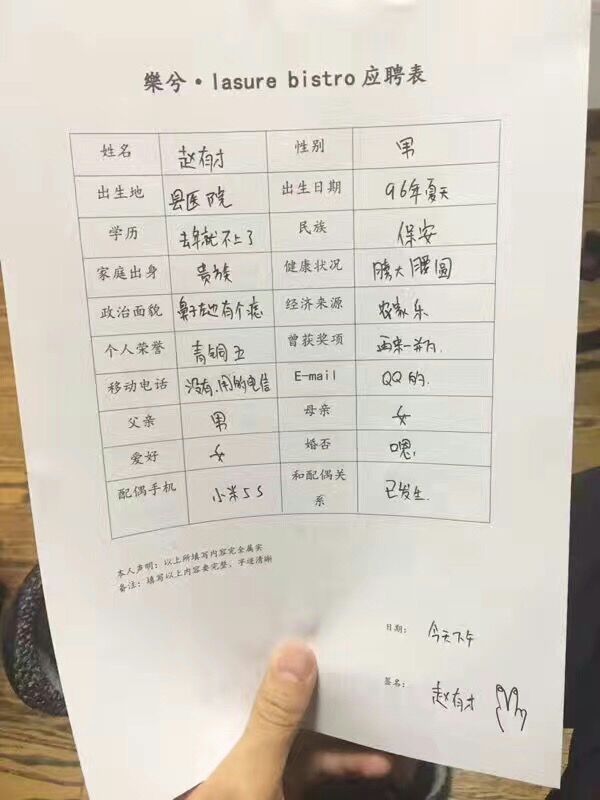 樂兮·lasure bistro 应聘表
姓名 赵有才 性别 男
出生地 县医院 出生日期 96年夏天
学历 去年就不上了 民族 保安
家庭出身 贵族 健康状况 腰大 圆
政治面貌 鼻子左边有个痣 经济来源 农家乐
个人荣誉 青铜五 曾获奖项 再来一瓶
移动电话 没有,用的电信 E-mail QQ的.
父亲 男 母亲 女
爱好 女 婚否 嗯.
配偶手机 小米5S 和配偶关系 已发生.
本人声明:以上所填写内容完全属实
备注:填写以上内容要完整、字迹清晰
日期: 今天下午
签名: 赵有才